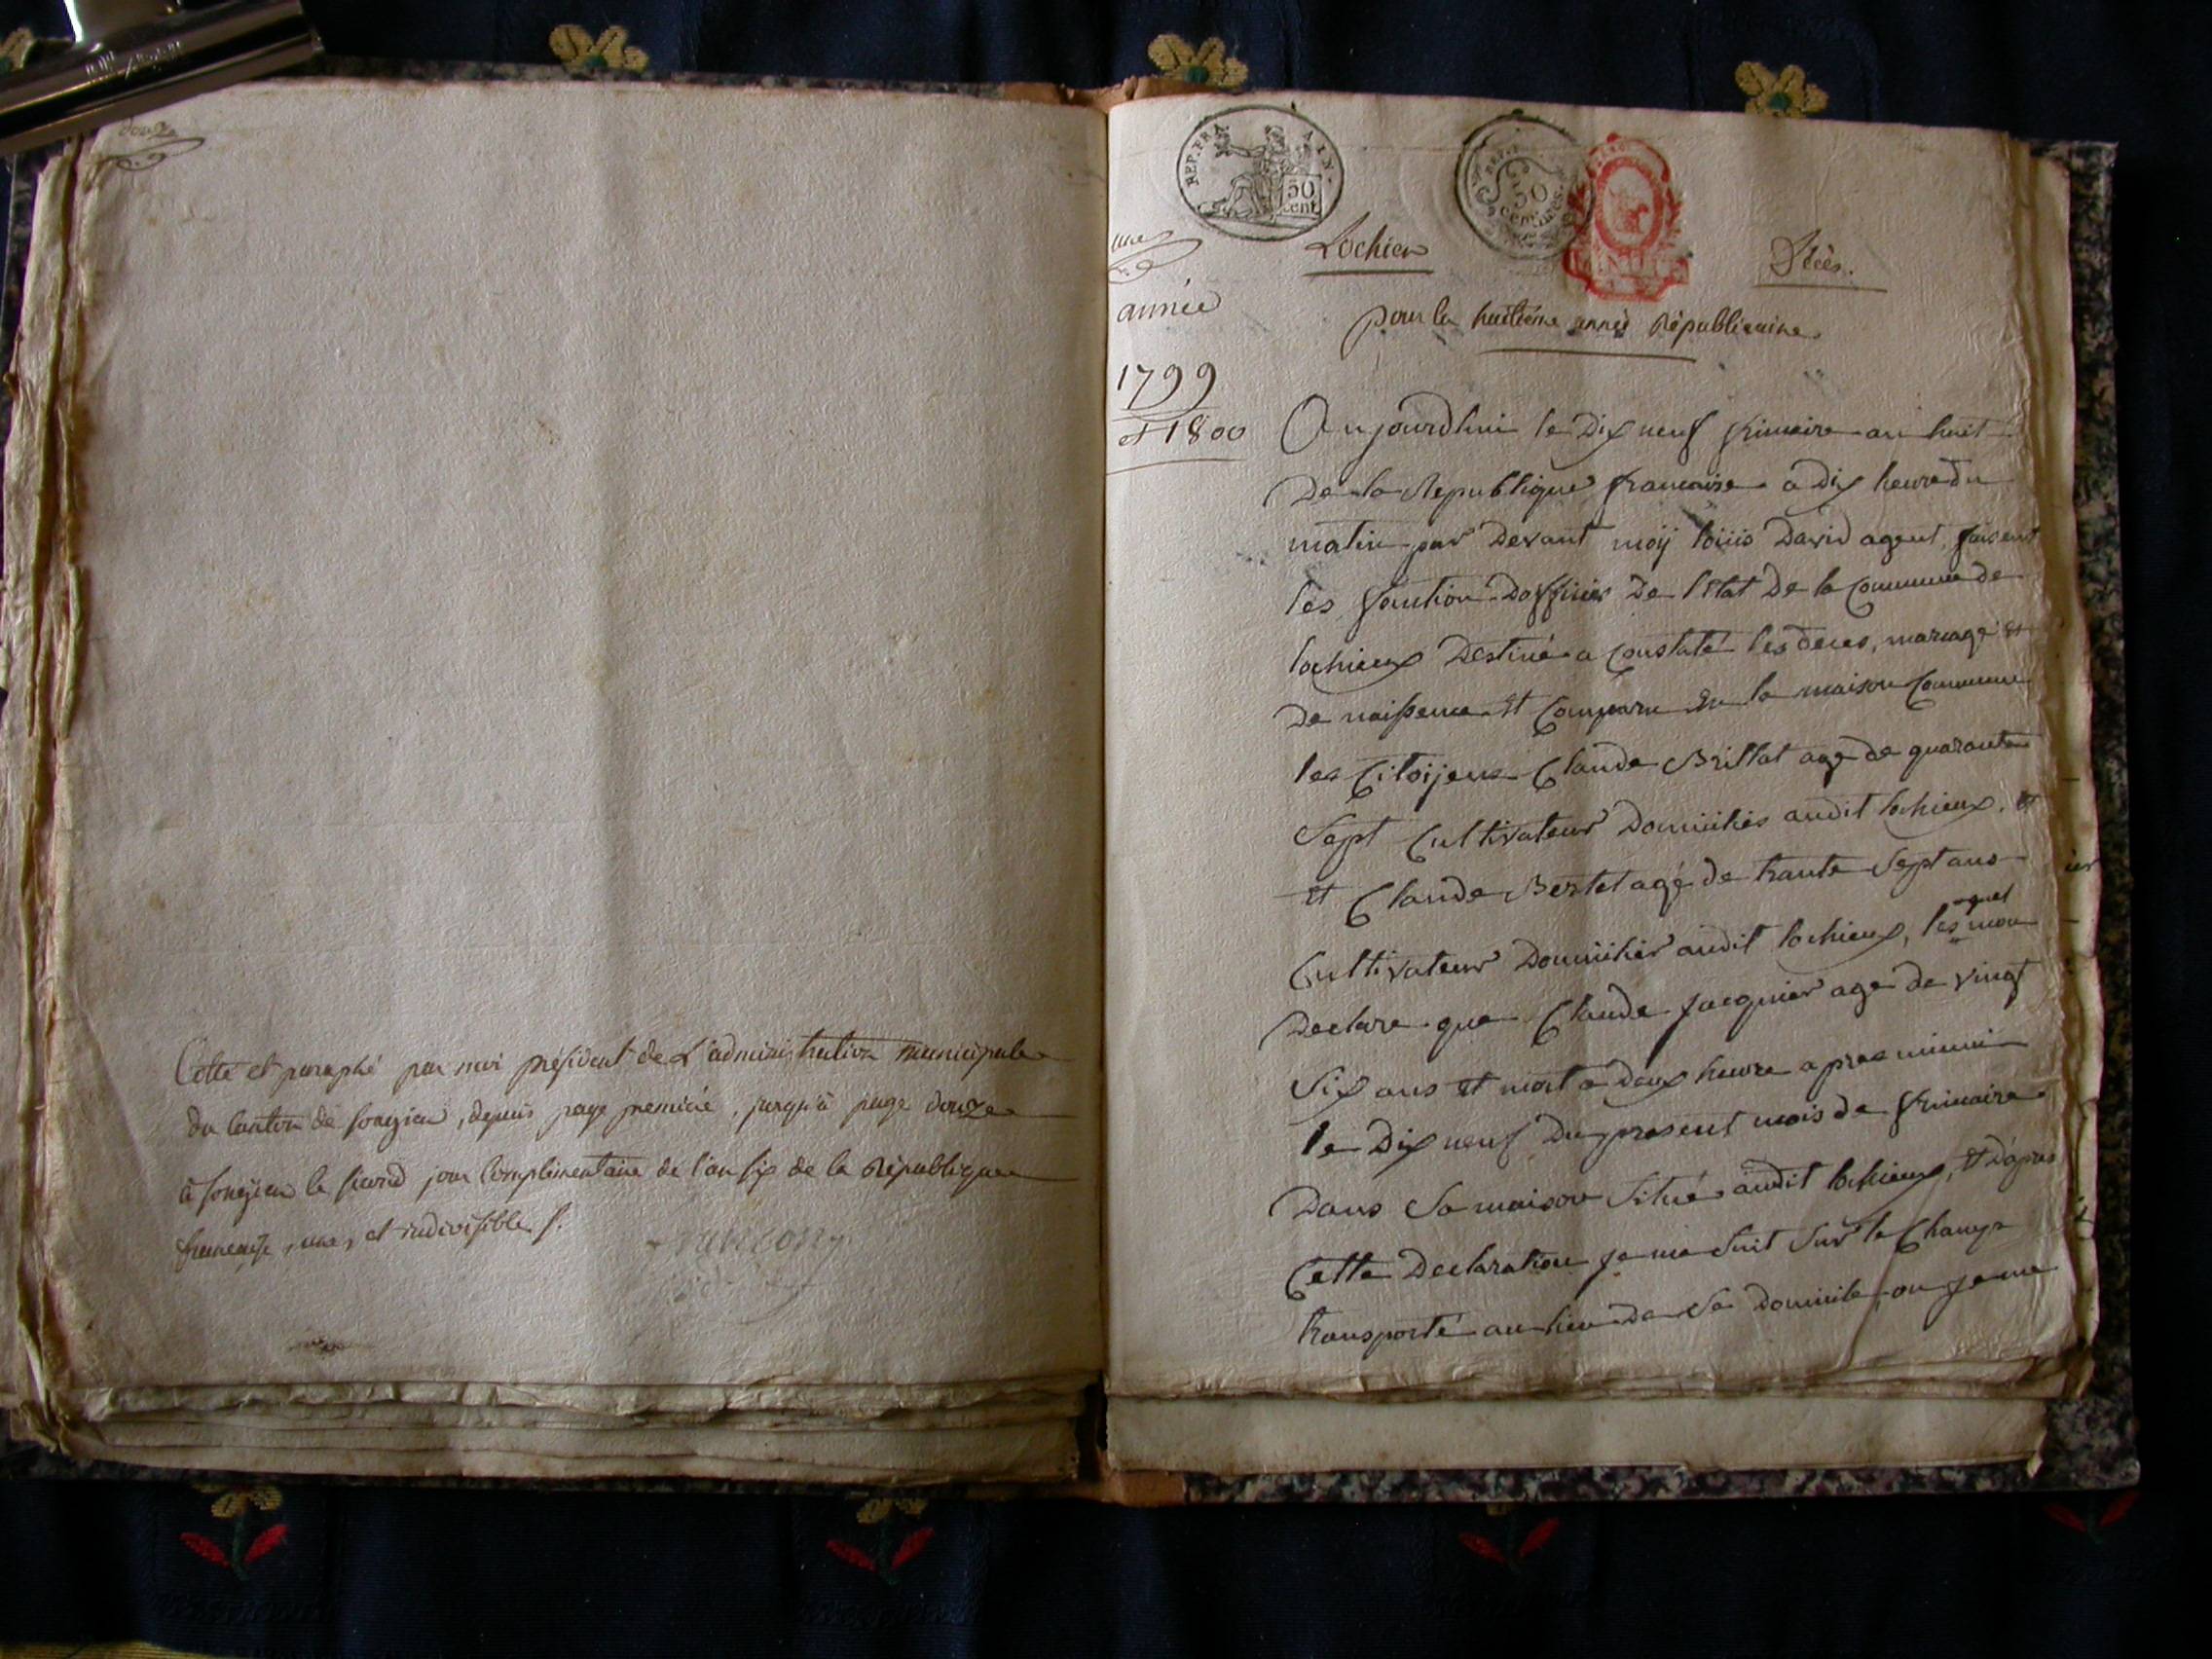 douze
Cotté et paraphé par moi président de L'administration municipale
du Canton de Songieu, depuis page première, jusqu'à page douze
à Songieu le second jour complimentaire de l'an six de la République
francaise, une, et indivisible /.
REP. FRA.
50
cent
50
centimes
une
Lochieu
Décès.
année
pour la huitième année Républicaine
1799
et 1800
Aujourdhui le Dix neuf frimaire an huit
De la Republique francaise a dix heure du
matin par Devant moÿ loüis David agent, faisent
les fontion Dofficier De l'Etat De la Commune de
lochieux Destiné a Constaté les deces, mariage et
De naissence et Comparu En la maison Commune
les Citoijens Claude Brillat agé de quarante
Sept Cultivateur Domiciliés audit lochieux, et
et Claude Bertet agé de trante Sept ans
Cultivateur Domicilier audit lochieux, lesquel mon
Declare que Claude Jacquier age de vingt
Six ans et mort a deux heure apres minuit
le Dix neuf Du present mois de frimaire
Dans Sa maison Situé audit lochieux, et d'apres
Cette Declaration je me Suit Sur le Champs
transporté au lieu de Se Domicile, ou je me